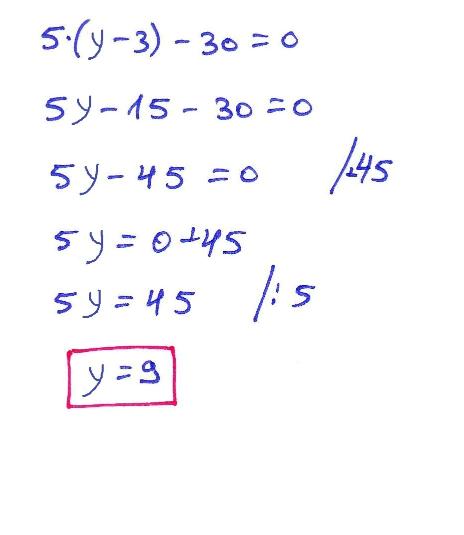 5·(y-3) - 30 = 0
5y - 15 - 30 = 0
5y - 45 = 0 /+45
5y = 0+45
5y = 45 /: 5
y = 9